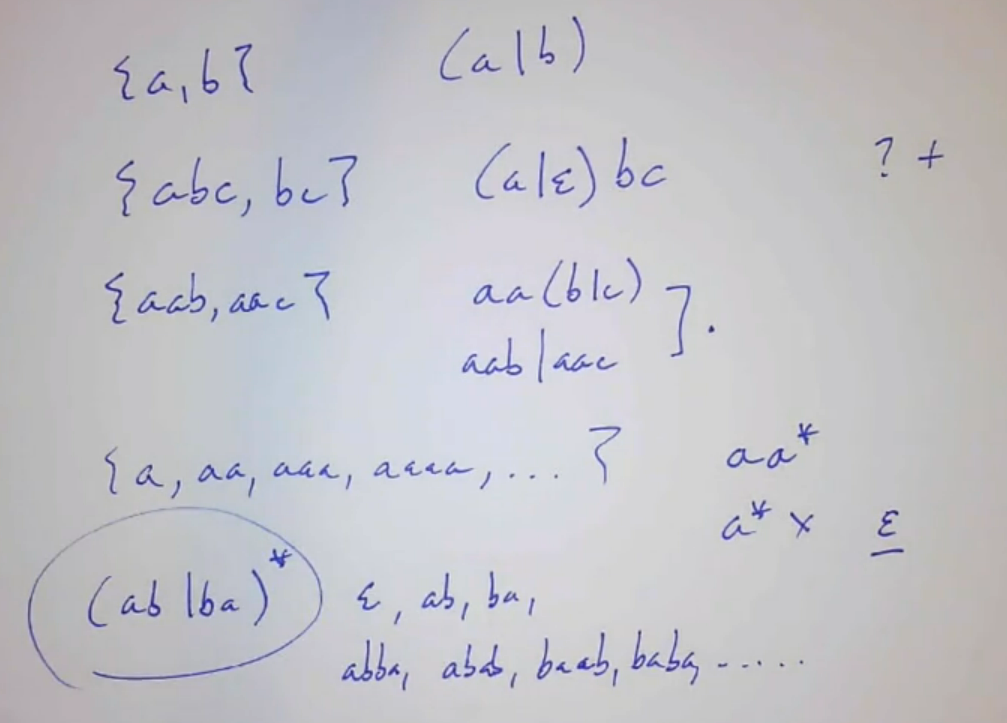 {a,b} (a|b)
{abc, bc} (a|ε) bc ? +
{aab, aac} aa(b|c)
aab|aac ] .
{a, aa, aaa, aaaa, ... } aa*
a* x ε
(ab|ba)* ε, ab, ba,
abba, abab, baab, baba, .....